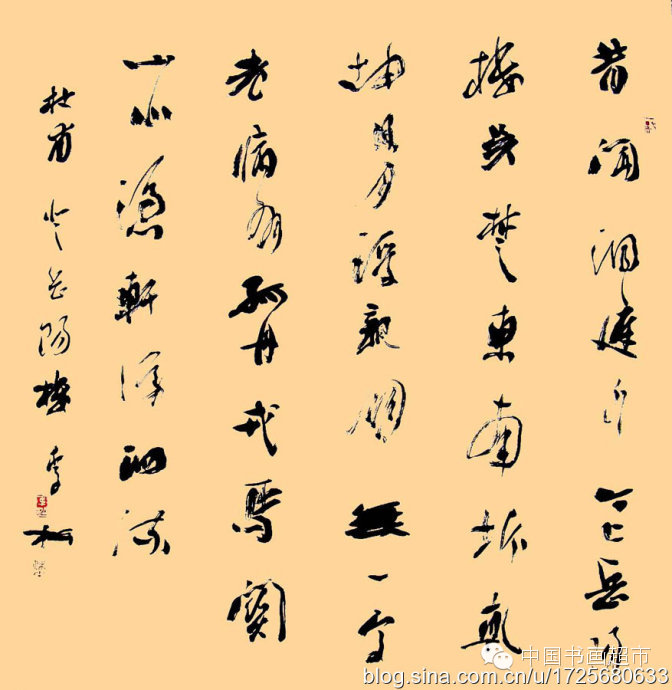 昔聞洞庭水今上岳陽
樓吳楚東南坼乾
坤日夜浮親朋無一字
老病有孤舟戎馬關
山北憑軒涕泗流
杜甫登岳陽樓 李
中国书画超市
blog.sina.com.cn/u/1725680633